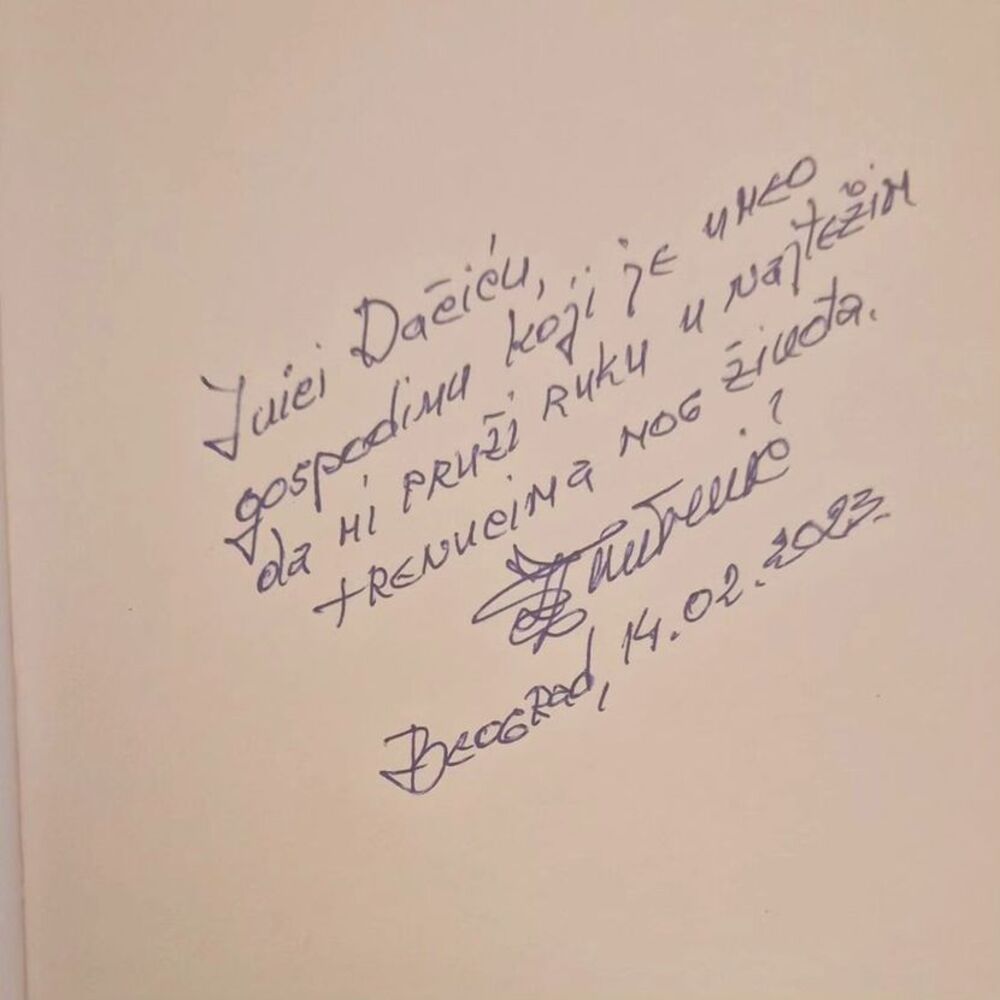 Ivici Dačiću,
gospodinu koji je umeo
da mi pruži ruku u najtežim
trenucima mog života.
Beograd, 14.02.2023.